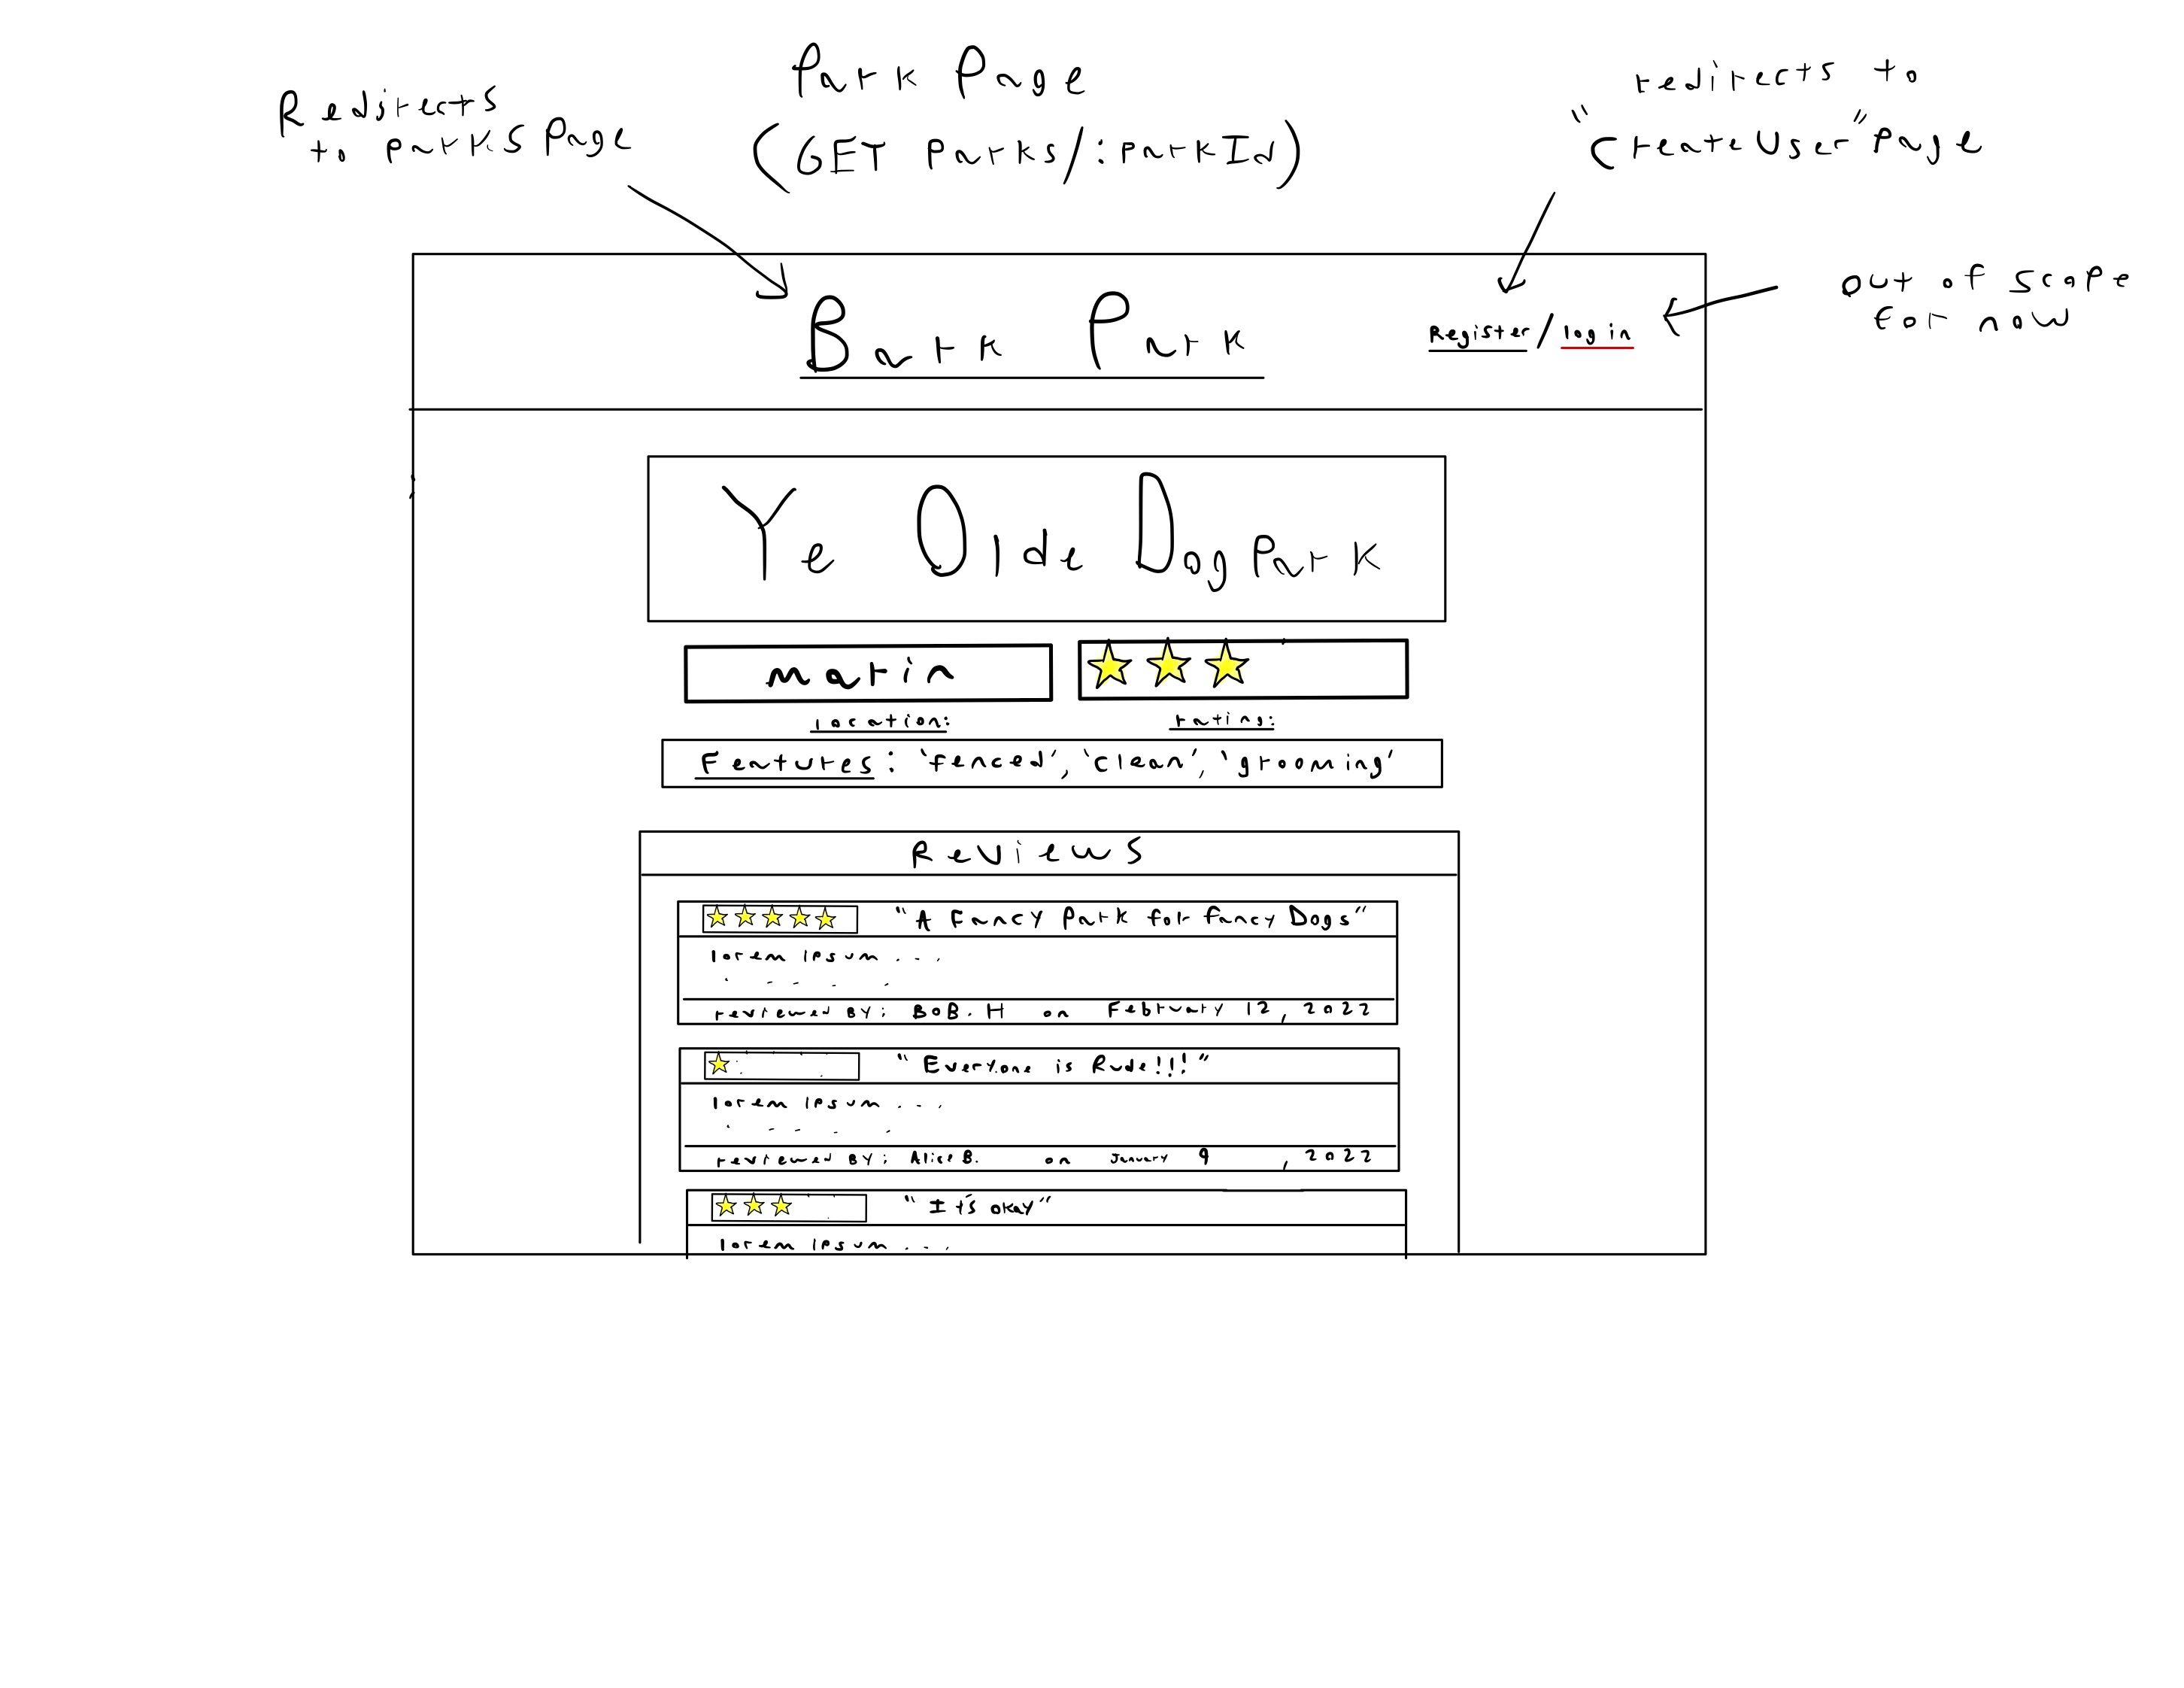 Park Page
(GET Parks/:parkId)
Redirects
to parks page
redirects to
"CreateUser" page
out of scope
for now
Bark Park
Register / login
Ye Olde Dog Park
marin
location:
rating:
Features: 'fenced', 'clean', 'grooming'
Reviews
"A Fancy Park for fancy Dogs"
lorem ipsum ...
reviewed BY: BOB. H on February 12, 2022
"Everyone is Rude!!!"
lorem ipsum ...
reviewed BY: Alice B. on January 9, 2022
"It's okay"
lorem ipsum ...